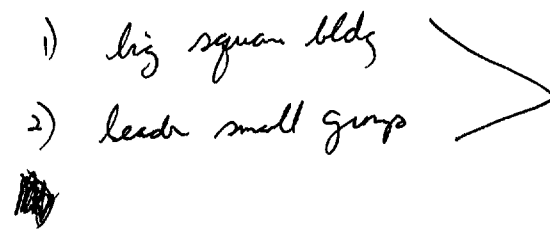 1) big square bldg
2) leader small group